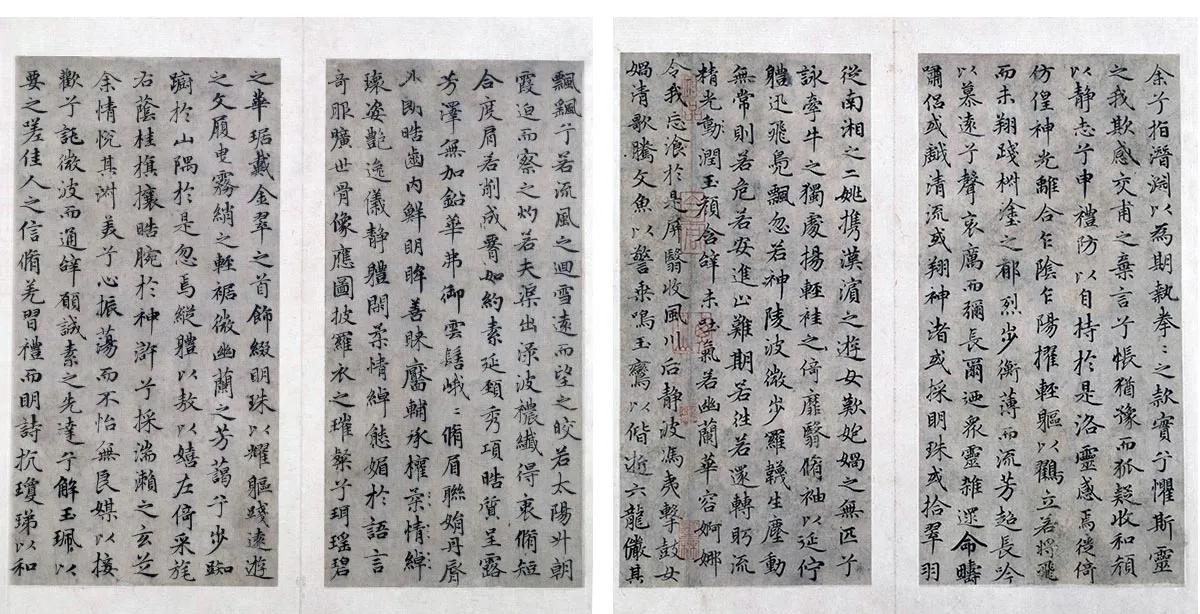 飄颻兮若流風之迴雪遠而望之皎若太陽升朝
霞迫而察之灼若夫渠出渌波穠纖得衷脩短
合度肩若削成腰如約素延頸秀項皓質呈露
芳澤無加鉛華弗御雲髻峩〻脩眉聯娟丹脣
外朗皓齒內鮮明眸善睞靨輔承權柔情綽
瓌姿艷逸儀静體閑柔情綽態媚於語言
奇服曠世骨像應圖披羅衣之璀粲兮珥瑶碧
之華琚戴金翠之首飾綴明珠以耀軀踐遠遊
之文履曳霧綃之輕裾微幽蘭之芳藹兮步踟
躕於山隅於是忽焉縱體以敖以嬉左倚采旄
右蔭桂旗攘皓腕於神滸兮採湍瀨之玄芝
余情悅其淑美兮心振蕩而不怡無良媒以接
歡兮託微波而通辭願誠素之先達兮解玉珮以
要之嗟佳人之信脩羌習禮而明詩抗瓊珶以和
余兮指潛淵以為期執拳〻之款實兮懼斯靈
之我欺感交甫之棄言兮悵猶豫而狐疑收和顏
以静志兮申禮防以自持於是洛靈感焉徙倚
仿偟神光離合乍陰乍陽擢輕軀以鶴立若將飛
而未翔踐椒塗之郁烈步衡薄而流芳超長吟
以慕遠兮聲哀厲而彌長爾迺眾靈雜遝命疇
嘯侶或戲清流或翔神渚或採明珠或拾翠羽
從南湘之二姚攜漢濱之遊女歎匏媧之無匹兮
詠牽牛之獨處揚輕袿之倚靡翳脩袖以延佇
體迅飛鳧飄忽若神陵波微步羅韈生塵動
無常則若危若安進止難期若往若還轉眄流
精光動潤玉顏含辭未吐氣若幽蘭華容婀娜
令我忘湌於是屏翳收風川后静波馮夷擊鼓女
媧清歌騰文魚以警乘鳴玉鸞以偕逝六龍儼其